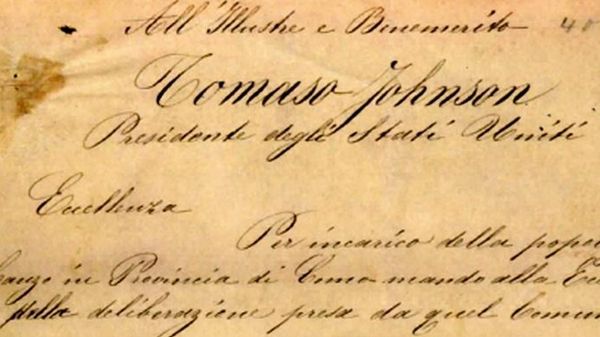 All' Illustre e Benemerito 40
Tomaso Johnson
Presidente degli Stati Uniti
Eccellenza
Per incarico della popol
Canzo in Provincia di Como mando alla Ecc
della deliberazione presa da quel Comun